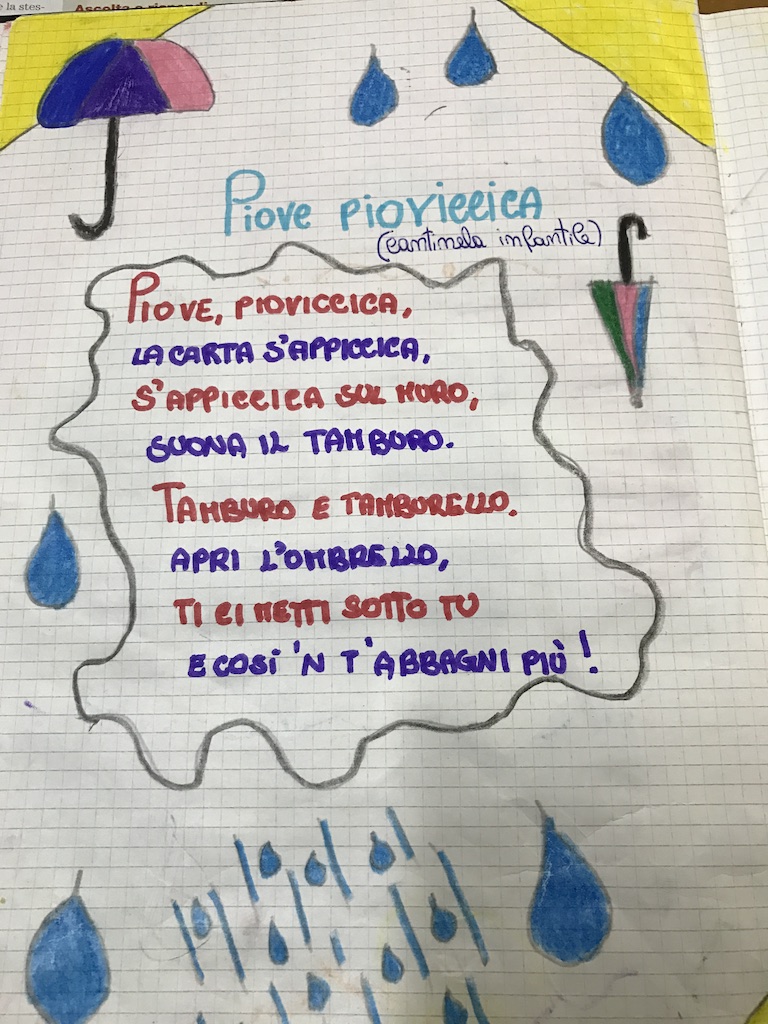 e la stes-
Ascolta e rispondi
Piove pioviccica
(cantinela infantile)
PIOVE, PIOVICCICA,
LA CARTA S'APPICCICA,
S'APPICCICA SUL MURO,
SUONA IL TAMBURO.
TAMBURO E TAMBURELLO.
APRI L'OMBRELLO,
TI CI METTI SOTTO TU
E COSÌ 'N T'ABBAGNI PIÙ!